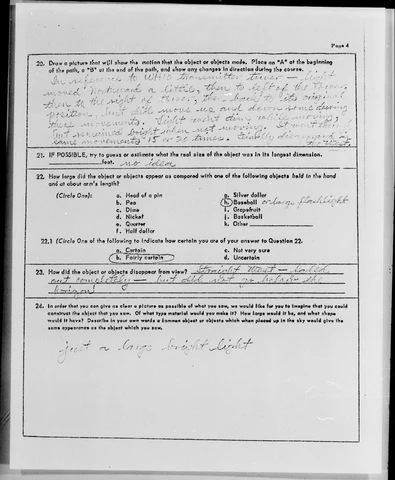 Page 4
20. Draw a picture that will show the motion that the object or objects made. Place an "A" at the beginning
of the path, a "B" at the end of the path, and show any changes in direction during the course.
In reference to WHIO transmitter tower — light
moved Northward a little, then to left of the tower,
then to the right of tower, then back to its original
position, but also move up and down some during
these movements. Light went dim while moving,
but remained bright when not moving. It went thru
same movements 15 or 20 times. Finally disappeared in
the West.
21. IF POSSIBLE, try to guess or estimate what the real size of the object was in its longest dimension.
feet. no idea
22. How large did the object or objects appear as compared with one of the following objects held in the hand
and at about arm's length?
(Circle One): a. Head of a pin g. Silver dollar
b. Pea h. Baseball or large flashlight
c. Dime i. Grapefruit
d. Nickel j. Basketball
e. Quarter k. Other
f. Half dollar
22.1 (Circle One of the following to indicate how certain you are of your answer to Question 22.
a. Certain c. Not very sure
b. Fairly certain d. Uncertain
23. How did the object or objects disappear from view? Straight West — faded
out completely — but did not go below the
horizon
24. In order that you can give as clear a picture as possible of what you saw, we would like for you to imagine that you could
construct the object that you saw. Of what type material would you make it? How large would it be, and what shape
would it have? Describe in your own words a common object or objects which when placed up in the sky would give the
same appearance as the object which you saw.
just a large bright light